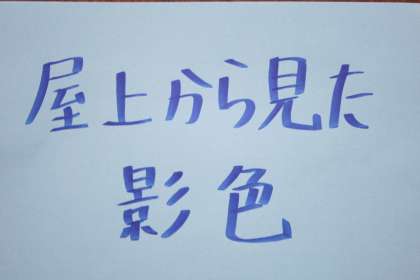 屋上から見た
影色